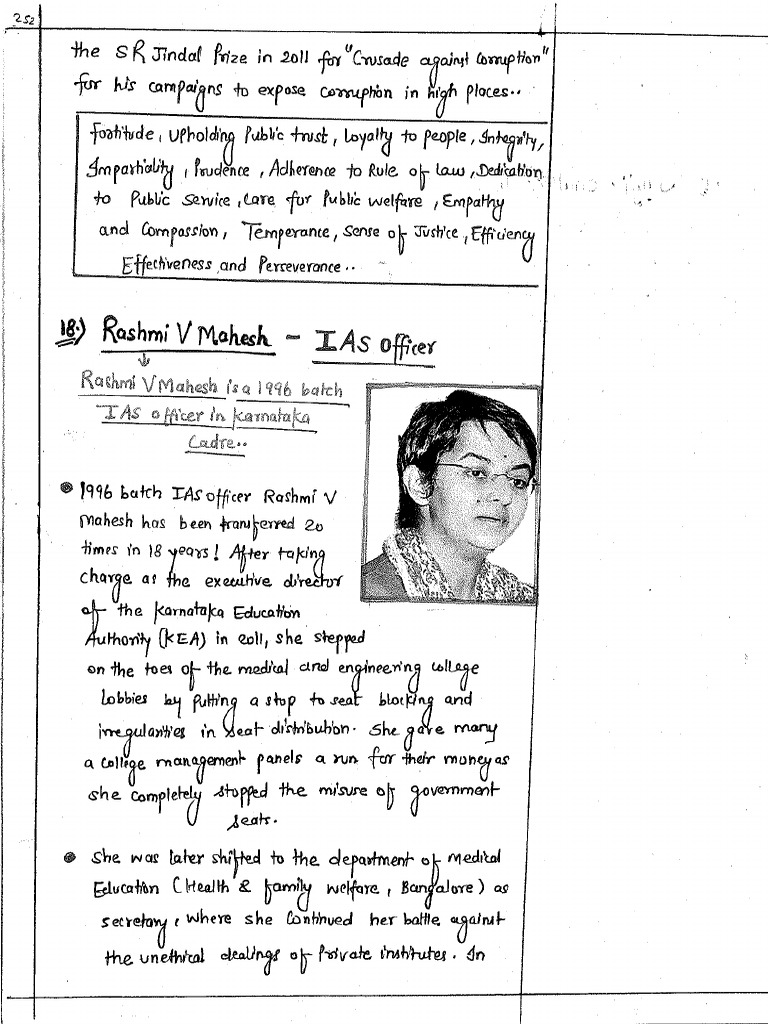 252
the SR Jindal Prize in 2011 for "Crusade against Corruption"
for his campaigns to expose corruption in high places..
Fortitude, Upholding Public trust, Loyalty to people, Integrity,
Impartiality, Prudence, Adherence to Rule of Law, Dedication
to Public Service, Care for Public Welfare, Empathy
and Compassion, Temperance, Sense of Justice, Efficiency
Effectiveness and Perseverance..
18.) Rashmi V Mahesh - IAS Officer
Rashmi V Mahesh is a 1996 batch
IAS officer in Karnataka
Cadre..
1996 batch IAS officer Rashmi V
Mahesh has been transferred 20
times in 18 years! After taking
charge as the executive director
of the Karnataka Education
Authority (KEA) in 2011, she stepped
on the toes of the medical and engineering college
lobbies by putting a stop to seat blocking and
irregularities in seat distribution. She gave many
a college management panels a run for their money as
she completely stopped the misuse of government
seats.
She was later shifted to the department of Medical
Education (Health & family welfare, Bangalore) as
secretary, where she continued her battle against
the unethical dealings of Private institutes. In